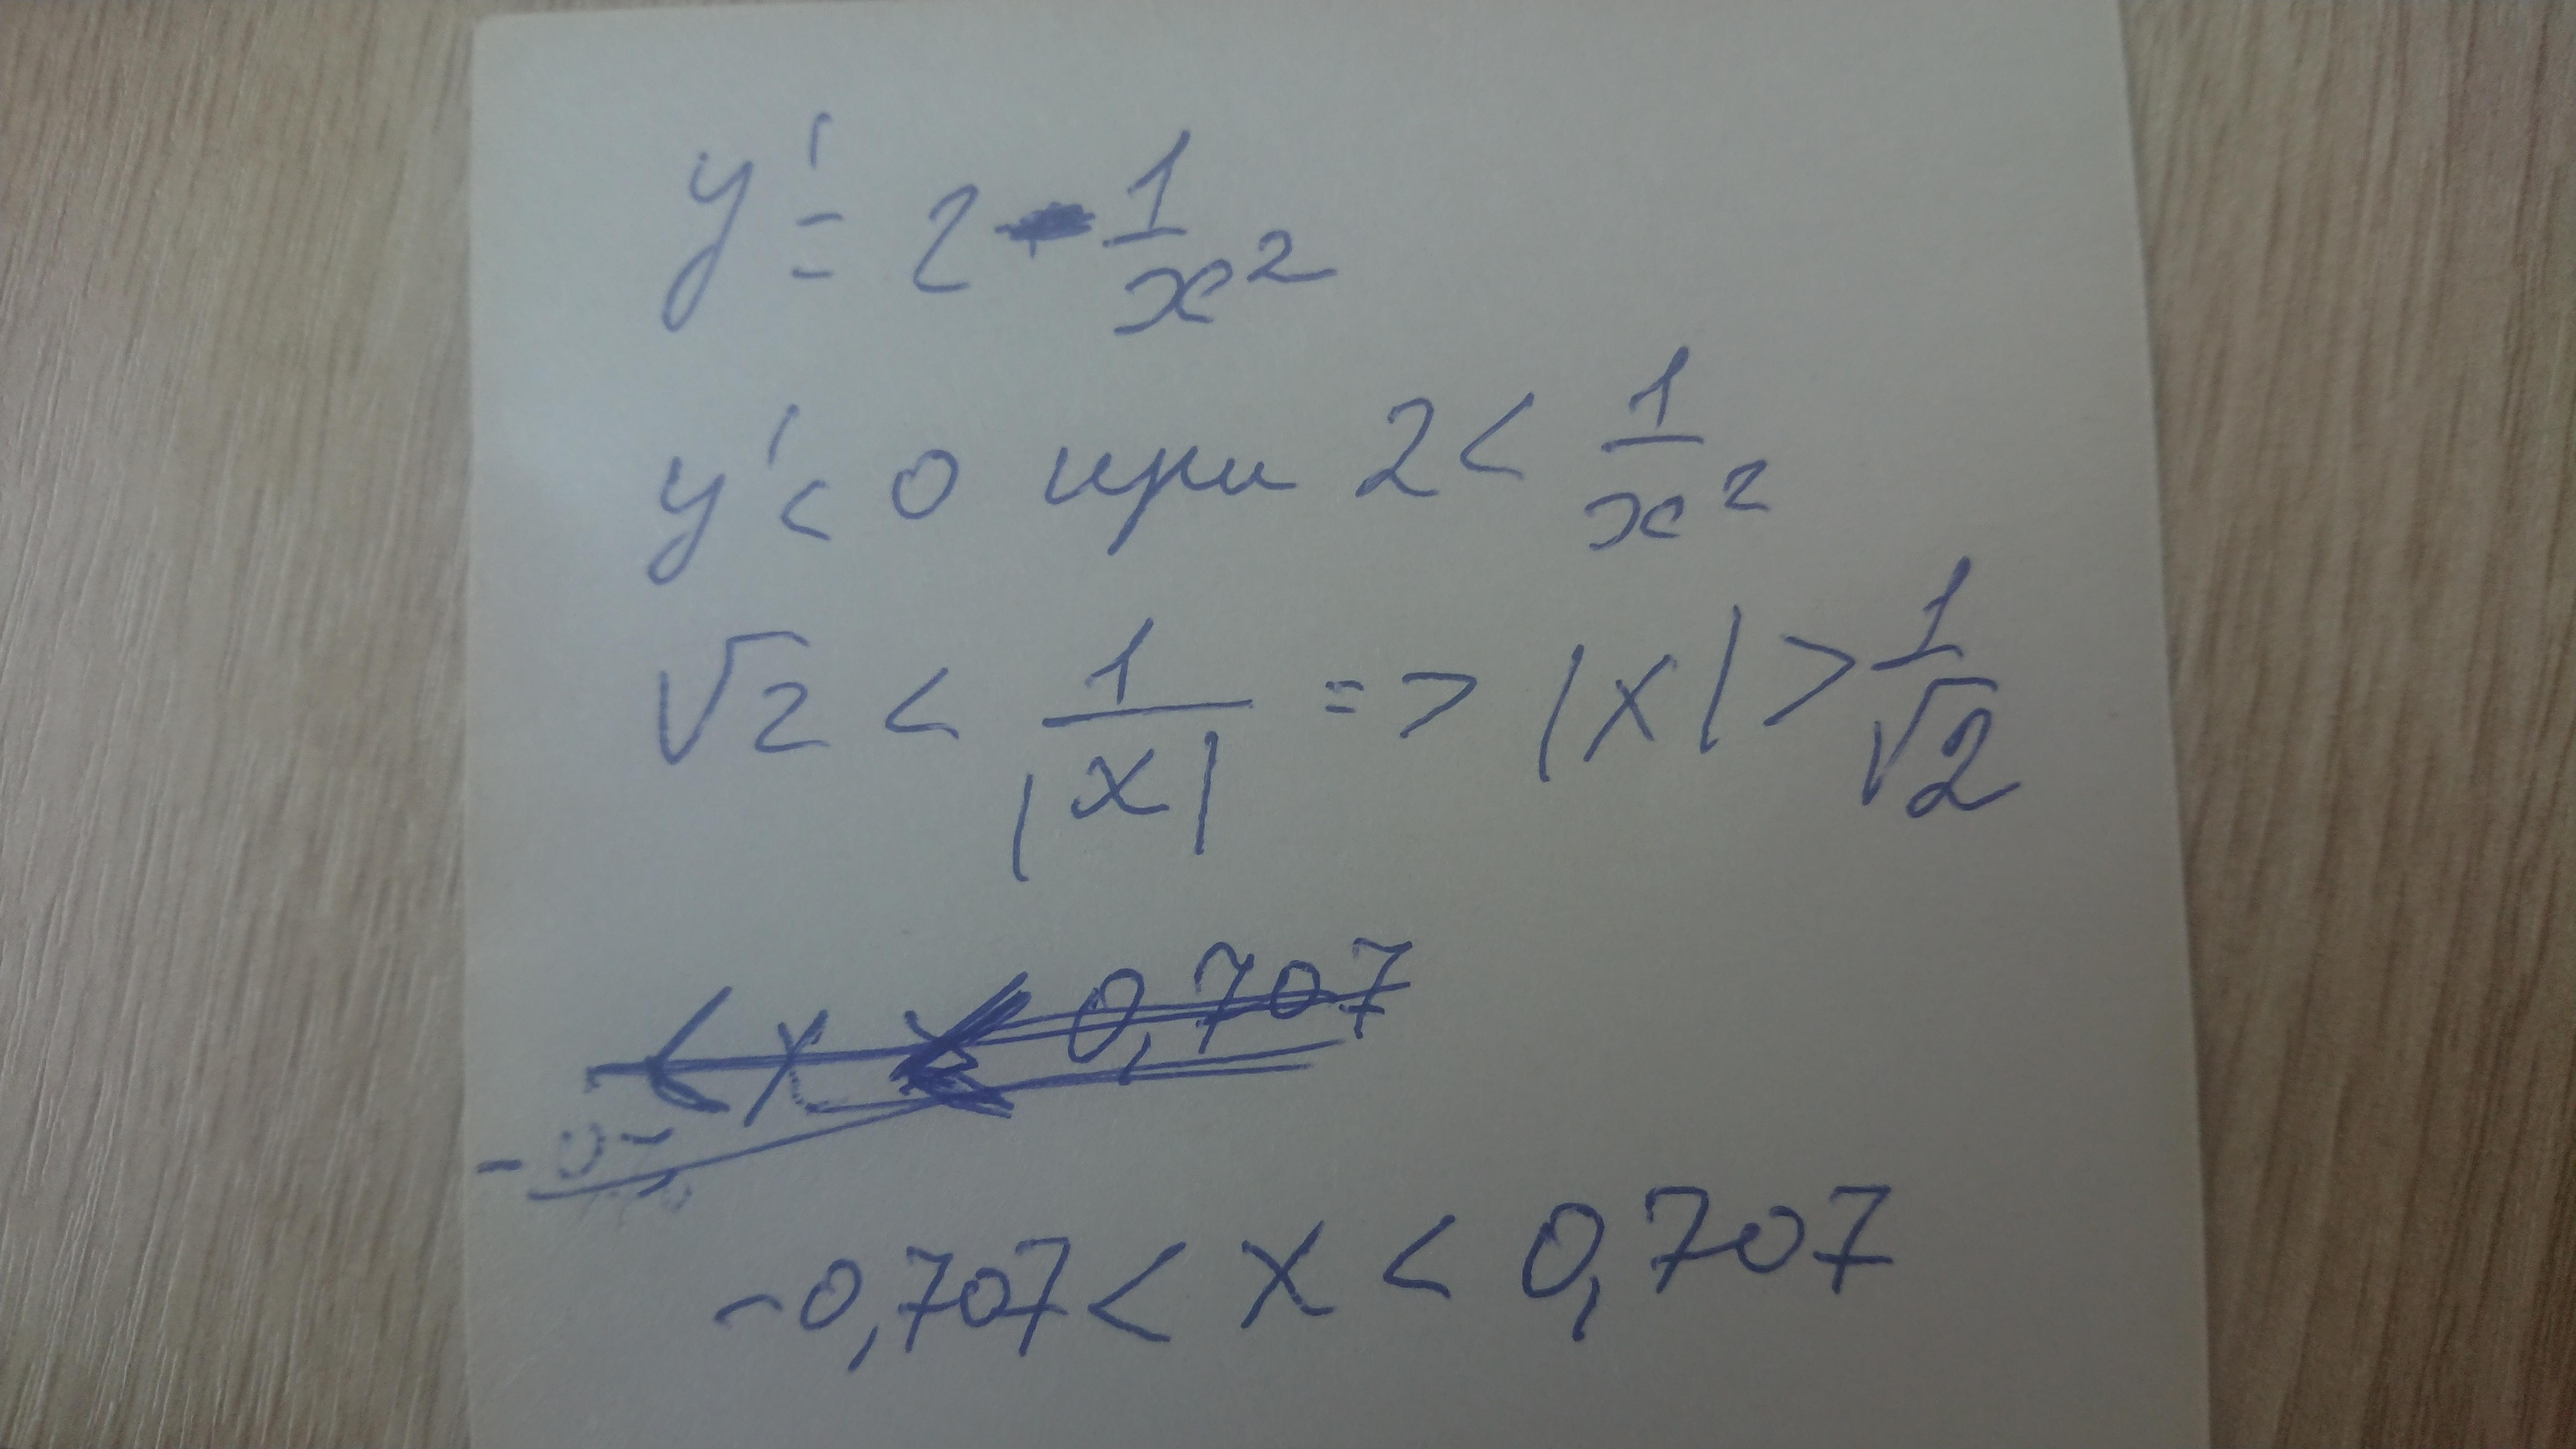 y' = 2 - 1/x²
y' < 0 при 2 < 1/x²
√2 < 1/|x| => |x| > 1/√2
< x < 0,707
-0,707 < x < 0,707